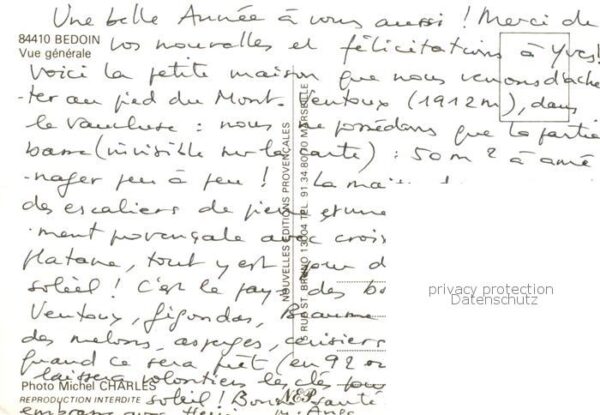 Une belle Année à vous aussi ! Merci de
84410 BEDOIN
Vue générale
vos nouvelles et félicitations à Yves!
Voici la petite maison que nous venons d'ache
-ter au pied du Mont-Ventoux (1912m), dans
le Vaucluse : nous ne possédons que la partie
basse (invisible sur la carte) : 50 m2 à amé
-nager peu à peu ! La mai
des escaliers de pierre et une
-ment provençale avec crois
platane, tout y est pour d
soleil ! C'est le pays des bo
Ventoux, Gigondas, Beaume
des melons, asperges, cerisiers
quand ce sera prêt (en 92 ou
laissera volontiers les clés pour
Photo Michel CHARLES
REPRODUCTION INTERDITE
soleil ! Bonne santé
embrasse
NOUVELLES EDITIONS PROVENÇALES
RUE ST. BRUNO 13004 TEL. 91 34 80 00 MARSEILLE
NEP
privacy protection
Datenschutz